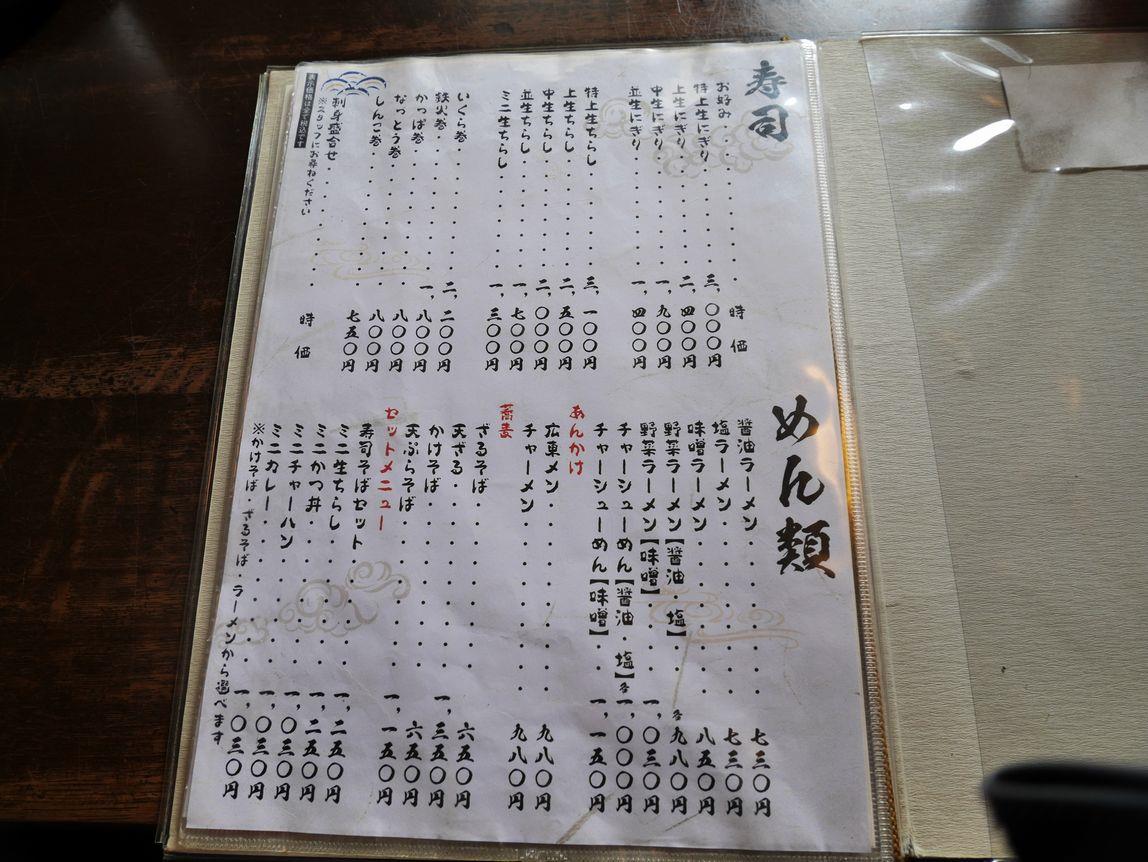 寿司
お好み 時価
特上生にぎり 三、〇〇〇円
上生にぎり 二、四〇〇円
中生にぎり 一、九〇〇円
並生にぎり 一、四〇〇円
特上生ちらし 三、一〇〇円
上生ちらし 二、五〇〇円
中生ちらし 二、〇〇〇円
並生ちらし 一、七〇〇円
ミニ生ちらし 一、三〇〇円
いくら巻 二、二〇〇円
鉄火巻 一、八〇〇円
かっぱ巻 八〇〇円
なっとう巻 八〇〇円
しんこ巻 七五〇円
刺身盛合せ 時価
※スタッフにお尋ねください
表示価格は全て税込です
めん類
醤油ラーメン 七三〇円
塩ラーメン 七三〇円
味噌ラーメン 八五〇円
野菜ラーメン【醤油・塩】 各九八〇円
野菜ラーメン【味噌】 一、〇三〇円
チャーシューめん【醤油・塩】各 一、〇〇〇円
チャーシューめん【味噌】 一、一五〇円
あんかけ
広東メン 九八〇円
チャーメン 九八〇円
蕎麦
ざるそば 六五〇円
天ざる 一、三五〇円
かけそば 六五〇円
天ぷらそば 一、一五〇円
セットメニュー
寿司そばセット 一、二五〇円
ミニ生ちらし 一、二五〇円
ミニかつ丼 一、〇三〇円
ミニチャーハン 一、〇三〇円
ミニカレー 一、〇三〇円
※かけそば・ざるそば・ラーメンから選べます